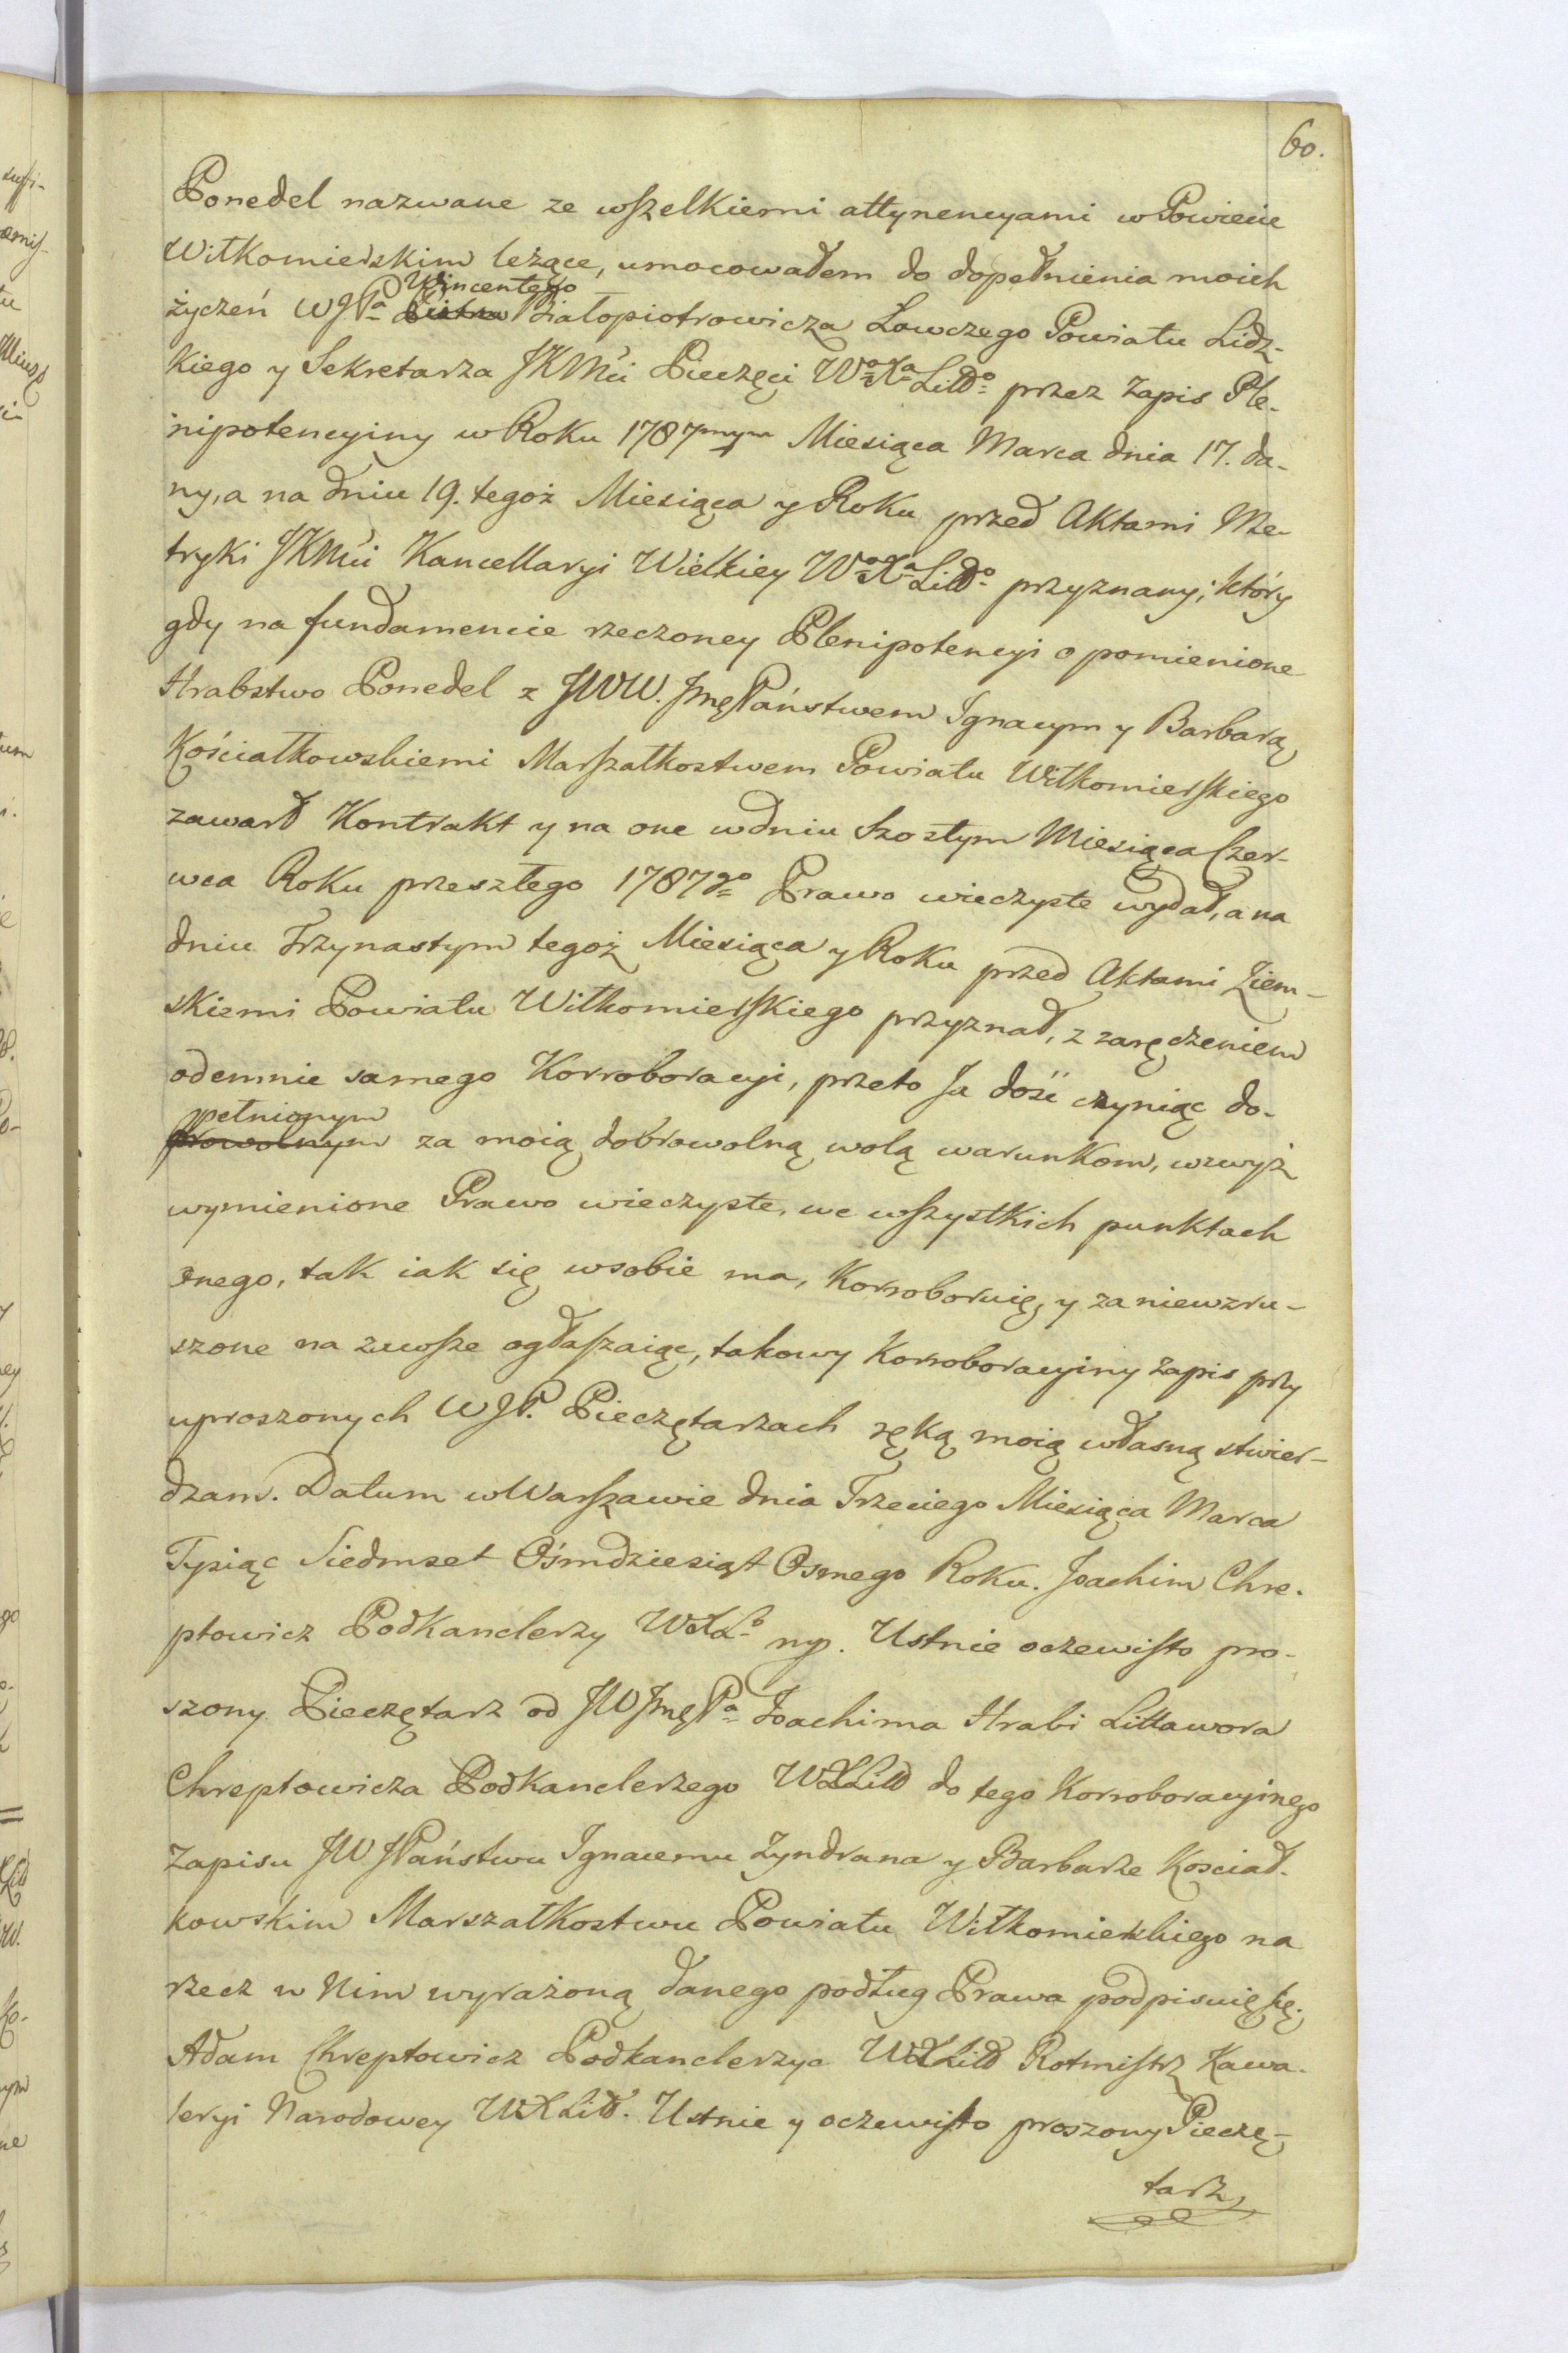 60.
Ponedel nazwane ze wszelkiemi attynencyami w Powiecie
Wiłkomierskim leżące, umocowałem do dopełnienia moich
Wincentego
życzeń WJPa Białopiotrowicza Łowczego Powiatu Lidz-
kiego y Sekretarza JKMći Pieczęci WoXaLittDo przez Zapis Ple-
nipotencyiny w Roku 1787mym Miesiąca Marca dnia 17. da-
ny, a na dniu 19. tegoż Miesiąca y Roku przed Aktami Me-
tryki JKMći Kancellaryi Wielkiey WoXaLittDo przyznany; który
gdy na fundamencie rzeczoney Plenipotencyi o pomienione
Hrabstwo Ponedel z JWW. JmęPaństwem Ignacym y Barbarą
Kościałkowskiemi Marszałkostwem Powiatu Wiłkomierskiego
zawarł Kontrakt y na one w dniu Szostym Miesiąca Czer-
wca Roku przeszłego 1787go Prawo wieczyste wydał, a na
dniu Trzynastym tegoż Miesiąca y Roku przed Aktami Ziem-
skiemi Powiatu Wiłkomierskiego przyznał, z zaręczeniem
odemnie samego Korroboracyi, przeto Ja dość czyniąc do-
pełnionym
prowolnym za moią dobrowolną wolą warunkom, wzwyż
wymienione Prawo wieczyste, we wszystkich punktach
onego, tak iak się w sobie ma, Korroboruię, y za niewzru-
szone na zawsze ogłaszaiąc, takowy Korroboracyiny zapis przy
uproszonych WJP. Pieczętarzach ręką moią własną stwier-
dzam. Datum w Warszawie dnia Trzeciego Miesiąca Marca
Tysiąc Siedmset Ośmdziesiąt Osmego Roku. Joachim Chre-
ptowicz Podkanclerzy WXLo mp. Ustnie oczewisto pro-
szony Pieczętarz od JWJmęPa Joachima Hrabi Littawora
Chreptowicza Podkanclerzego WXLittD do tego Korroboracyinego
Zapisu JWJPaństwu Ignacemu Zyndrana y Barbarze Kosciał-
kowskim Marszałkostwu Powiatu Wiłkomierskiego na
rzecz w Nim wyrażoną danego podług Prawa podpisuię się.
Adam Chreptowicz Podkanclerzyc WXLittD Rotmistrz Kawa-
leryi Narodowey WXLittD. Ustnie y oczewisto proszony Pieczę-
tarz